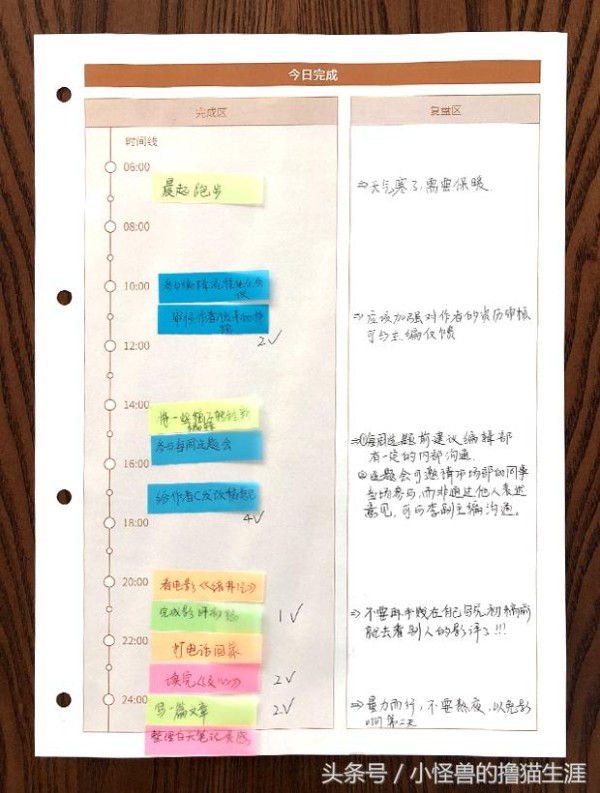 今日完成
完成区
复盘区
时间线
06:00
晨起跑步
⇒天气寒了,需要保暖
08:00
10:00
审核作者
2√
⇒应该加强对作者的资历审核
可与主编反馈
12:00
14:00
将一校稿子转给
编辑
参与每周选题会
⇒①每周选题前建议编辑部
有一定的内部沟通。
②选题会可邀请市场部的同事
当场参与,而非通过他人表述
意见,可与李副主编沟通。
16:00
给作者C发改稿意见
4√
18:00
20:00
看电影
完成影评初稿
1√
⇒不要再手贱在自己写完初稿前
就去看别人的影评了!!!
22:00
打电话回家
读完
2√
24:00
写一篇文章
2√
⇒量力而行,不要熬夜,以免影
响第二天
整理白天笔记灵感
头条号/小怪兽的撸猫生涯